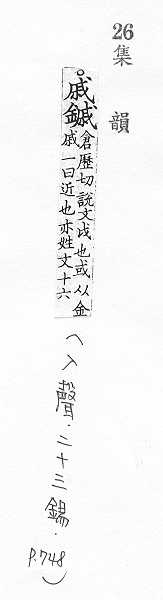 26
集韻
。戚鏚
倉歷切説文戉也或从金
戚一曰近也亦姓文十六
(入聲．二十三錫．P.748)